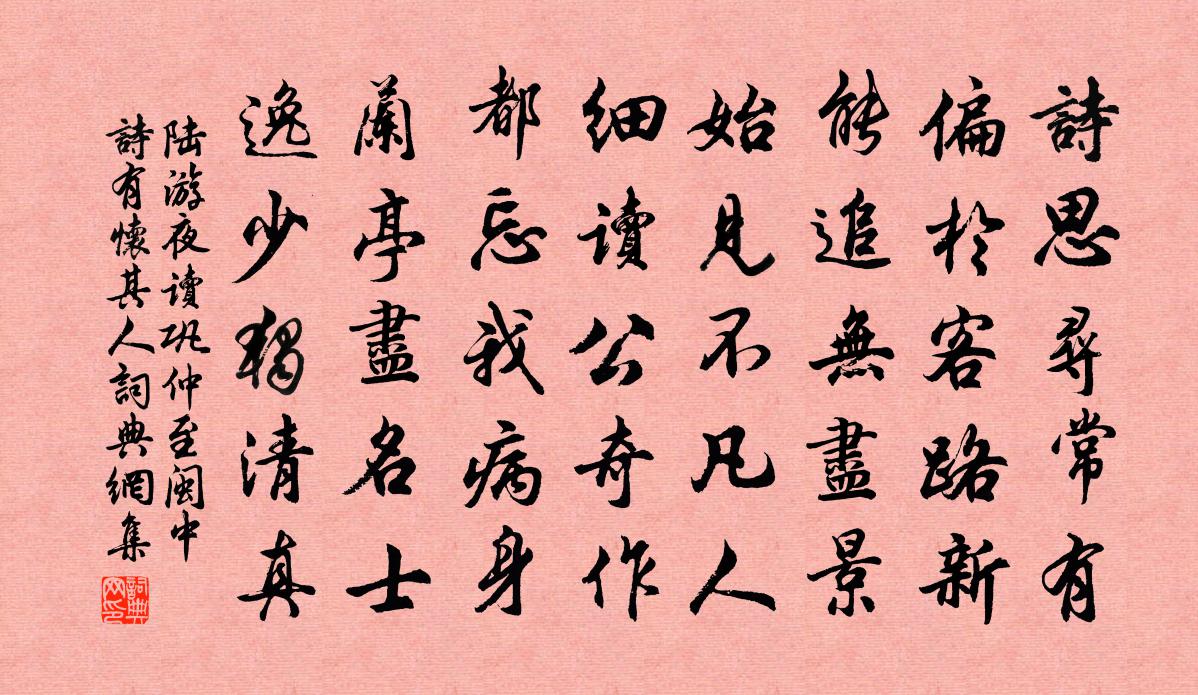 詩思尋常有
偏於客路新
能追無盡景
始見不凡人
細讀公奇作
都忘我病身
蘭亭盡名士
逸少獨清真
陆游夜讀巩仲至闽中
詩有懷其人詞典網集
詞典網印